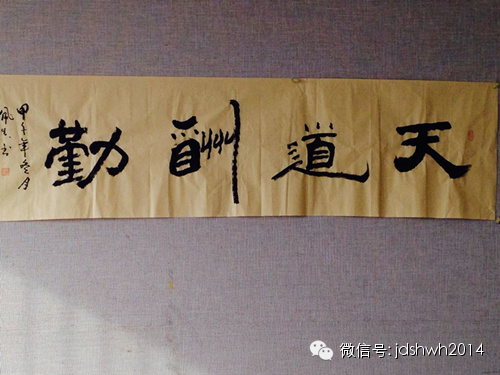 天道酬勤
甲午年冬月
微信号: jdshwh2014